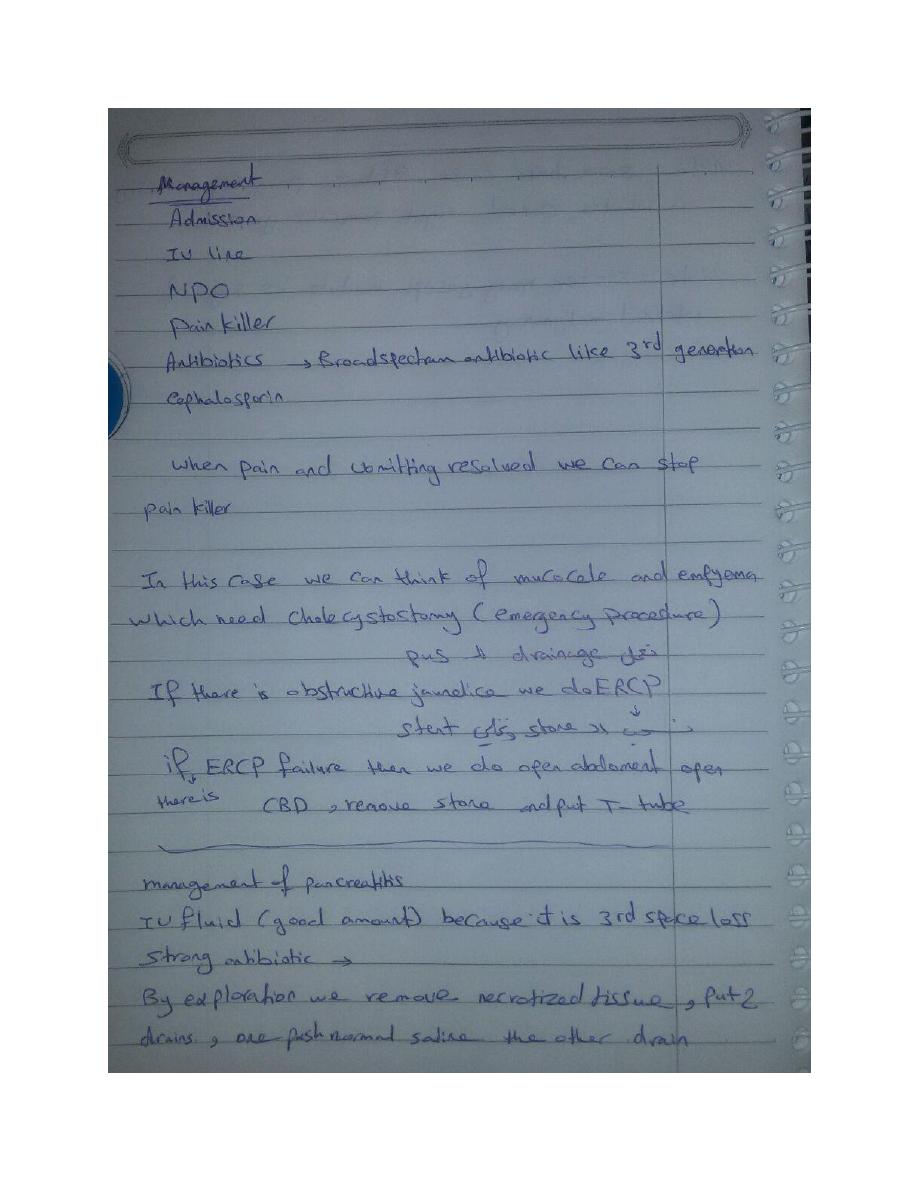 Management
Admission
IV line
NPO
Pain killer
Antibiotics → Broadspectrum antibiotic like 3rd generation
Cephalosporin
when pain and vomitting resolved we can stop
pain killer
In this case we can think of mucocele and empyema
which need cholecystostomy (emergency procedure)
pus drainage
If there is obstructive jaundice we do ERCP
↓
stent stone
if ERCP failure then we do open abdoment open
there is CBD , remove stone and put T-tube
management of pancreatitis
IV fluid (good amount) because it is 3rd space loss
Strong antibiotic →
By exploration we remove necrotized tissue , put 2
drains , one push normal saline the other drain